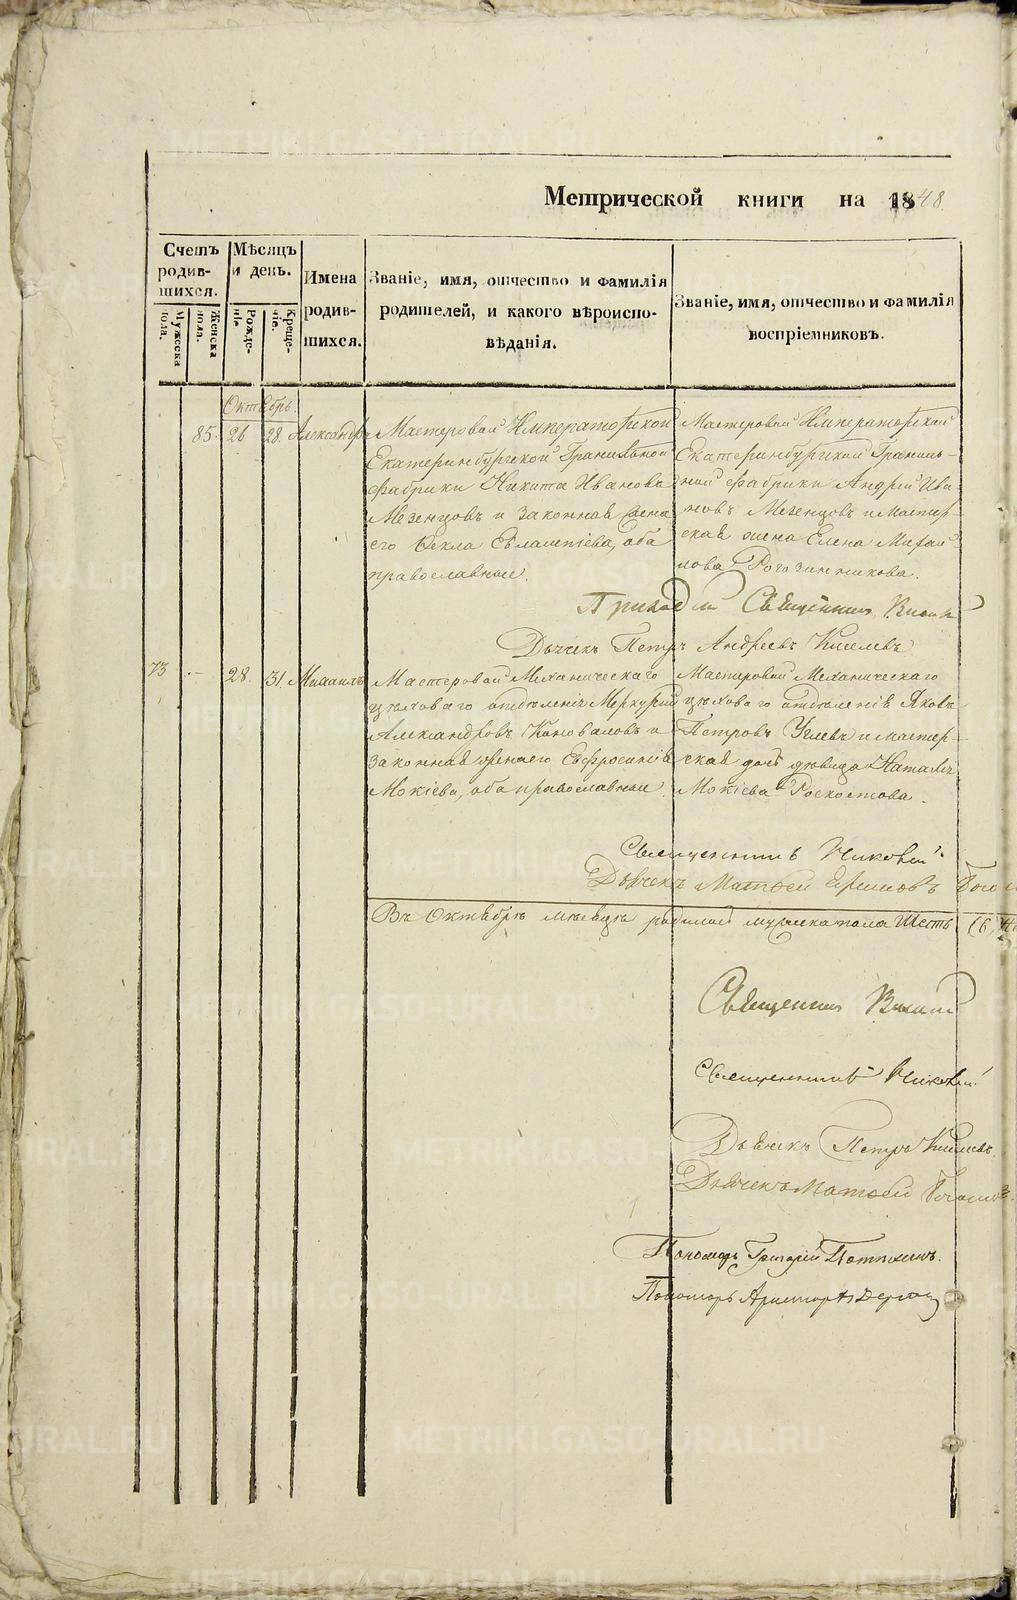 Метрической книги на 1848
Счетъ родив-шихся.
Мужеска пола.
Женска пола.
Мѣсяцъ и день.
Рожде-нiе.
Креще-нiе.
Имена родив-шихся.
Званiе, имя, отчество и фамилiя
родителей, и какого вѣроиспо-
вѣданiя.
Званiе, имя, отчество и фамилiя
воспрiемниковъ.
Октябрь.
85. 26 28. Александра
Мастеровой Императорской
Екатеринбургской Гранильной
фабрики Никита Иванова
Мезенцовъ и законная жена
его Фекла Евлампiева, оба
православные.
Мастеровой Императорской
Екатеринбургской Гранил-
ной фабрики Андрей Ива-
новъ Мезенцовъ и мастер-
ская жена Елена Михай
лова Рогозинникова.
Священник
Дьячекъ Петръ Андреевъ Киселевъ
73 28. 31. Михаилъ
Мастеровой Механическаго
цѣховаго отдѣленiя Меркурiй
Александровъ Коноваловъ и
законная жена его Евфросинiя
Мокiева, оба православные.
Мастеровой Механическаго
цѣховаго отдѣленiя Яковъ
Петровъ Углевъ и мастер-
ская дочь дѣвица Наталья
Мокiева
Священникъ
Дьячекъ Матвей
Въ Октябрѣ мѣсяцѣ родилось мужеска пола Шесть (6)
Священник
Священникъ
Дьячекъ Петръ Киселевъ.
Дьячекъ Матвей
Пономарь Григорiй
Пономарь
METRIKI.GASO-URAL.RU